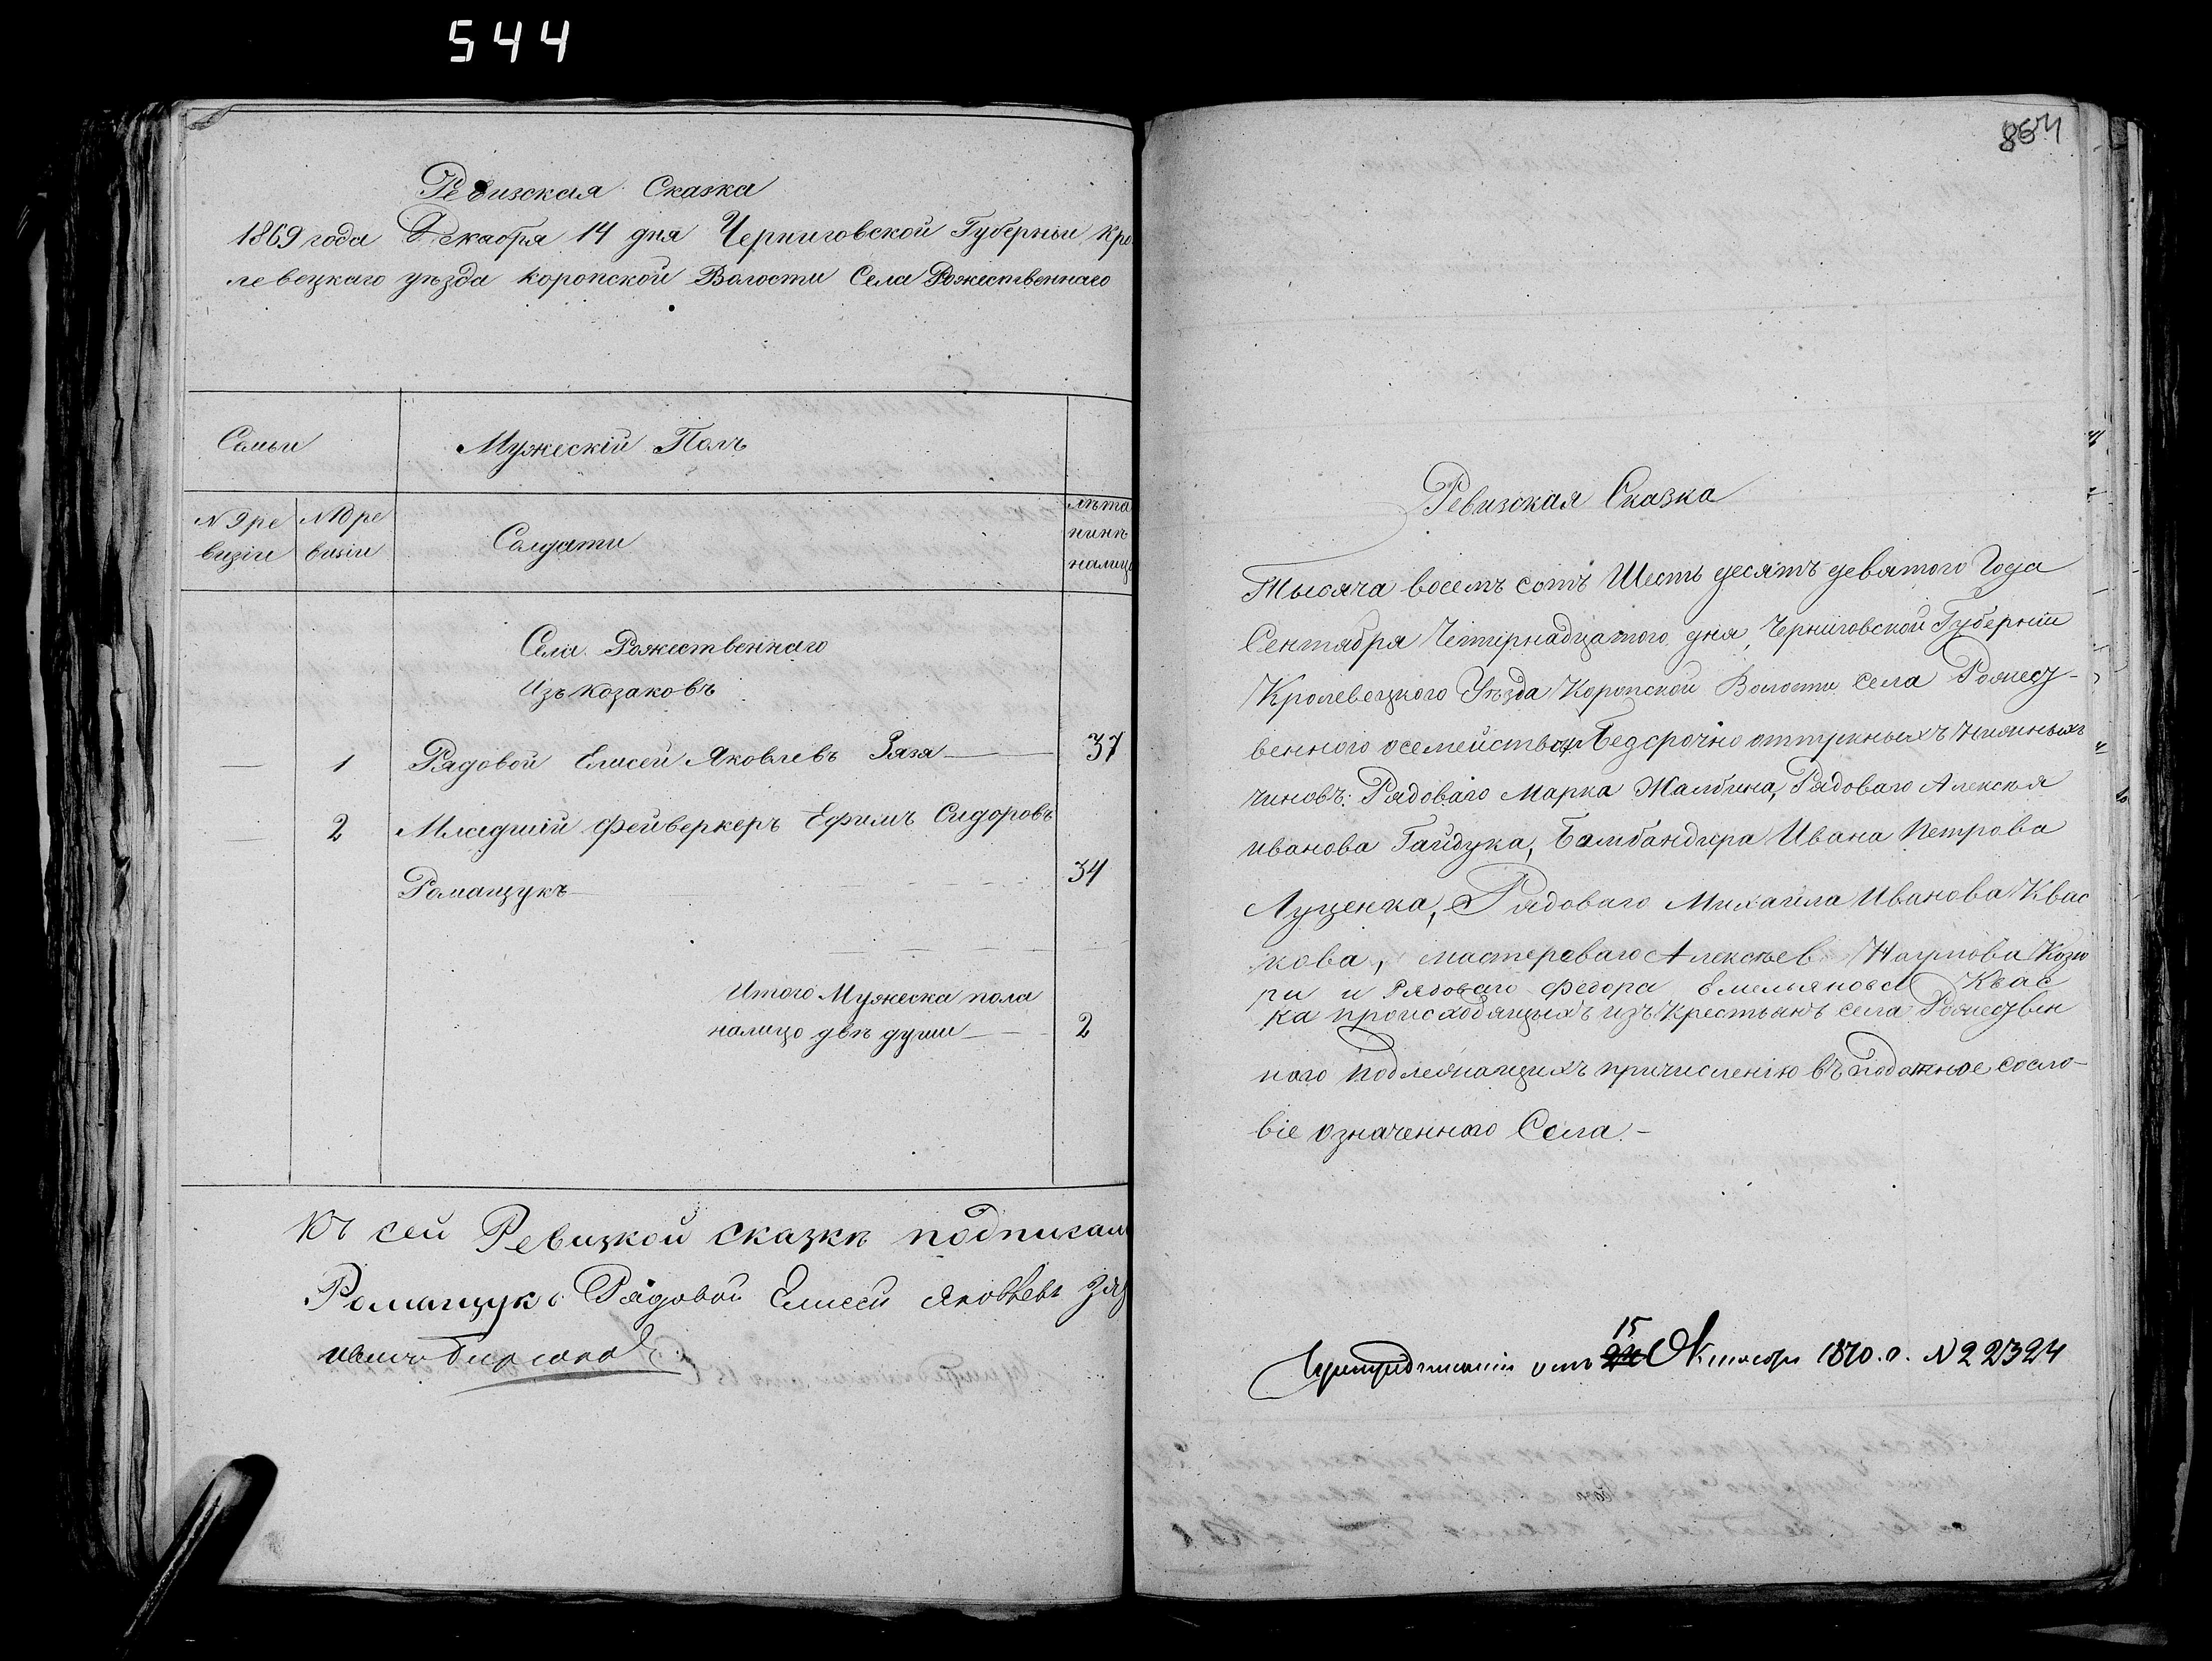 544
Ревизская Сказка
1869 года Декабря 14 дня Черниговской Губернии Кро
левецкаго уѣзда Коропской Волости Села Рожественнаго
Семьи
Мужескій Полъ
N 9 ре
визіи
N 10 ре
визіи
Солдати
лѣта
нинѣ
налицо
Села Рожественнаго
Изъ козаковъ
1 Рядовой Елисей Яковлевъ Зязя 37
2 Младшій Фейверкеръ Ефимъ Сидоровъ
Ромащукъ 34
Итого Мужеска пола
налицо двѣ души 2
Къ сей Ревизкой сказкѣ подписали
Ромащукъ Рядовой Елисей Яковлевъ Зяз
864
Ревизская Сказка
Тысяча восемъ сотъ Шесть десятъ девятого Года
Сентября Четирнадцатого дня, Черниговской Губерніи
Кролевецкого Уѣзда Коропской Волости села Рожест-
венного о семействахъ Бедсрочно отпускныхъ Нижныхъ
чиновъ: Рядоваго Марка Жалбина, Рядоваго Алексѣя
Иванова Гайдука, Бамбандира Ивана Петрова
Луценка, Рядоваго Михаила Иванова Квас
кова, мастероваго Алексѣев Наумова Козю
ри и Рядоваго Федора Емельянова Квас
ка происходящихъ изъ Крестьянъ села Рожедзвен
ного подлежащихъ причисленію въ подотное сосло-
віе означенного Села.-
При предписаніи отъ 15 Октября 1870.г. N 22324